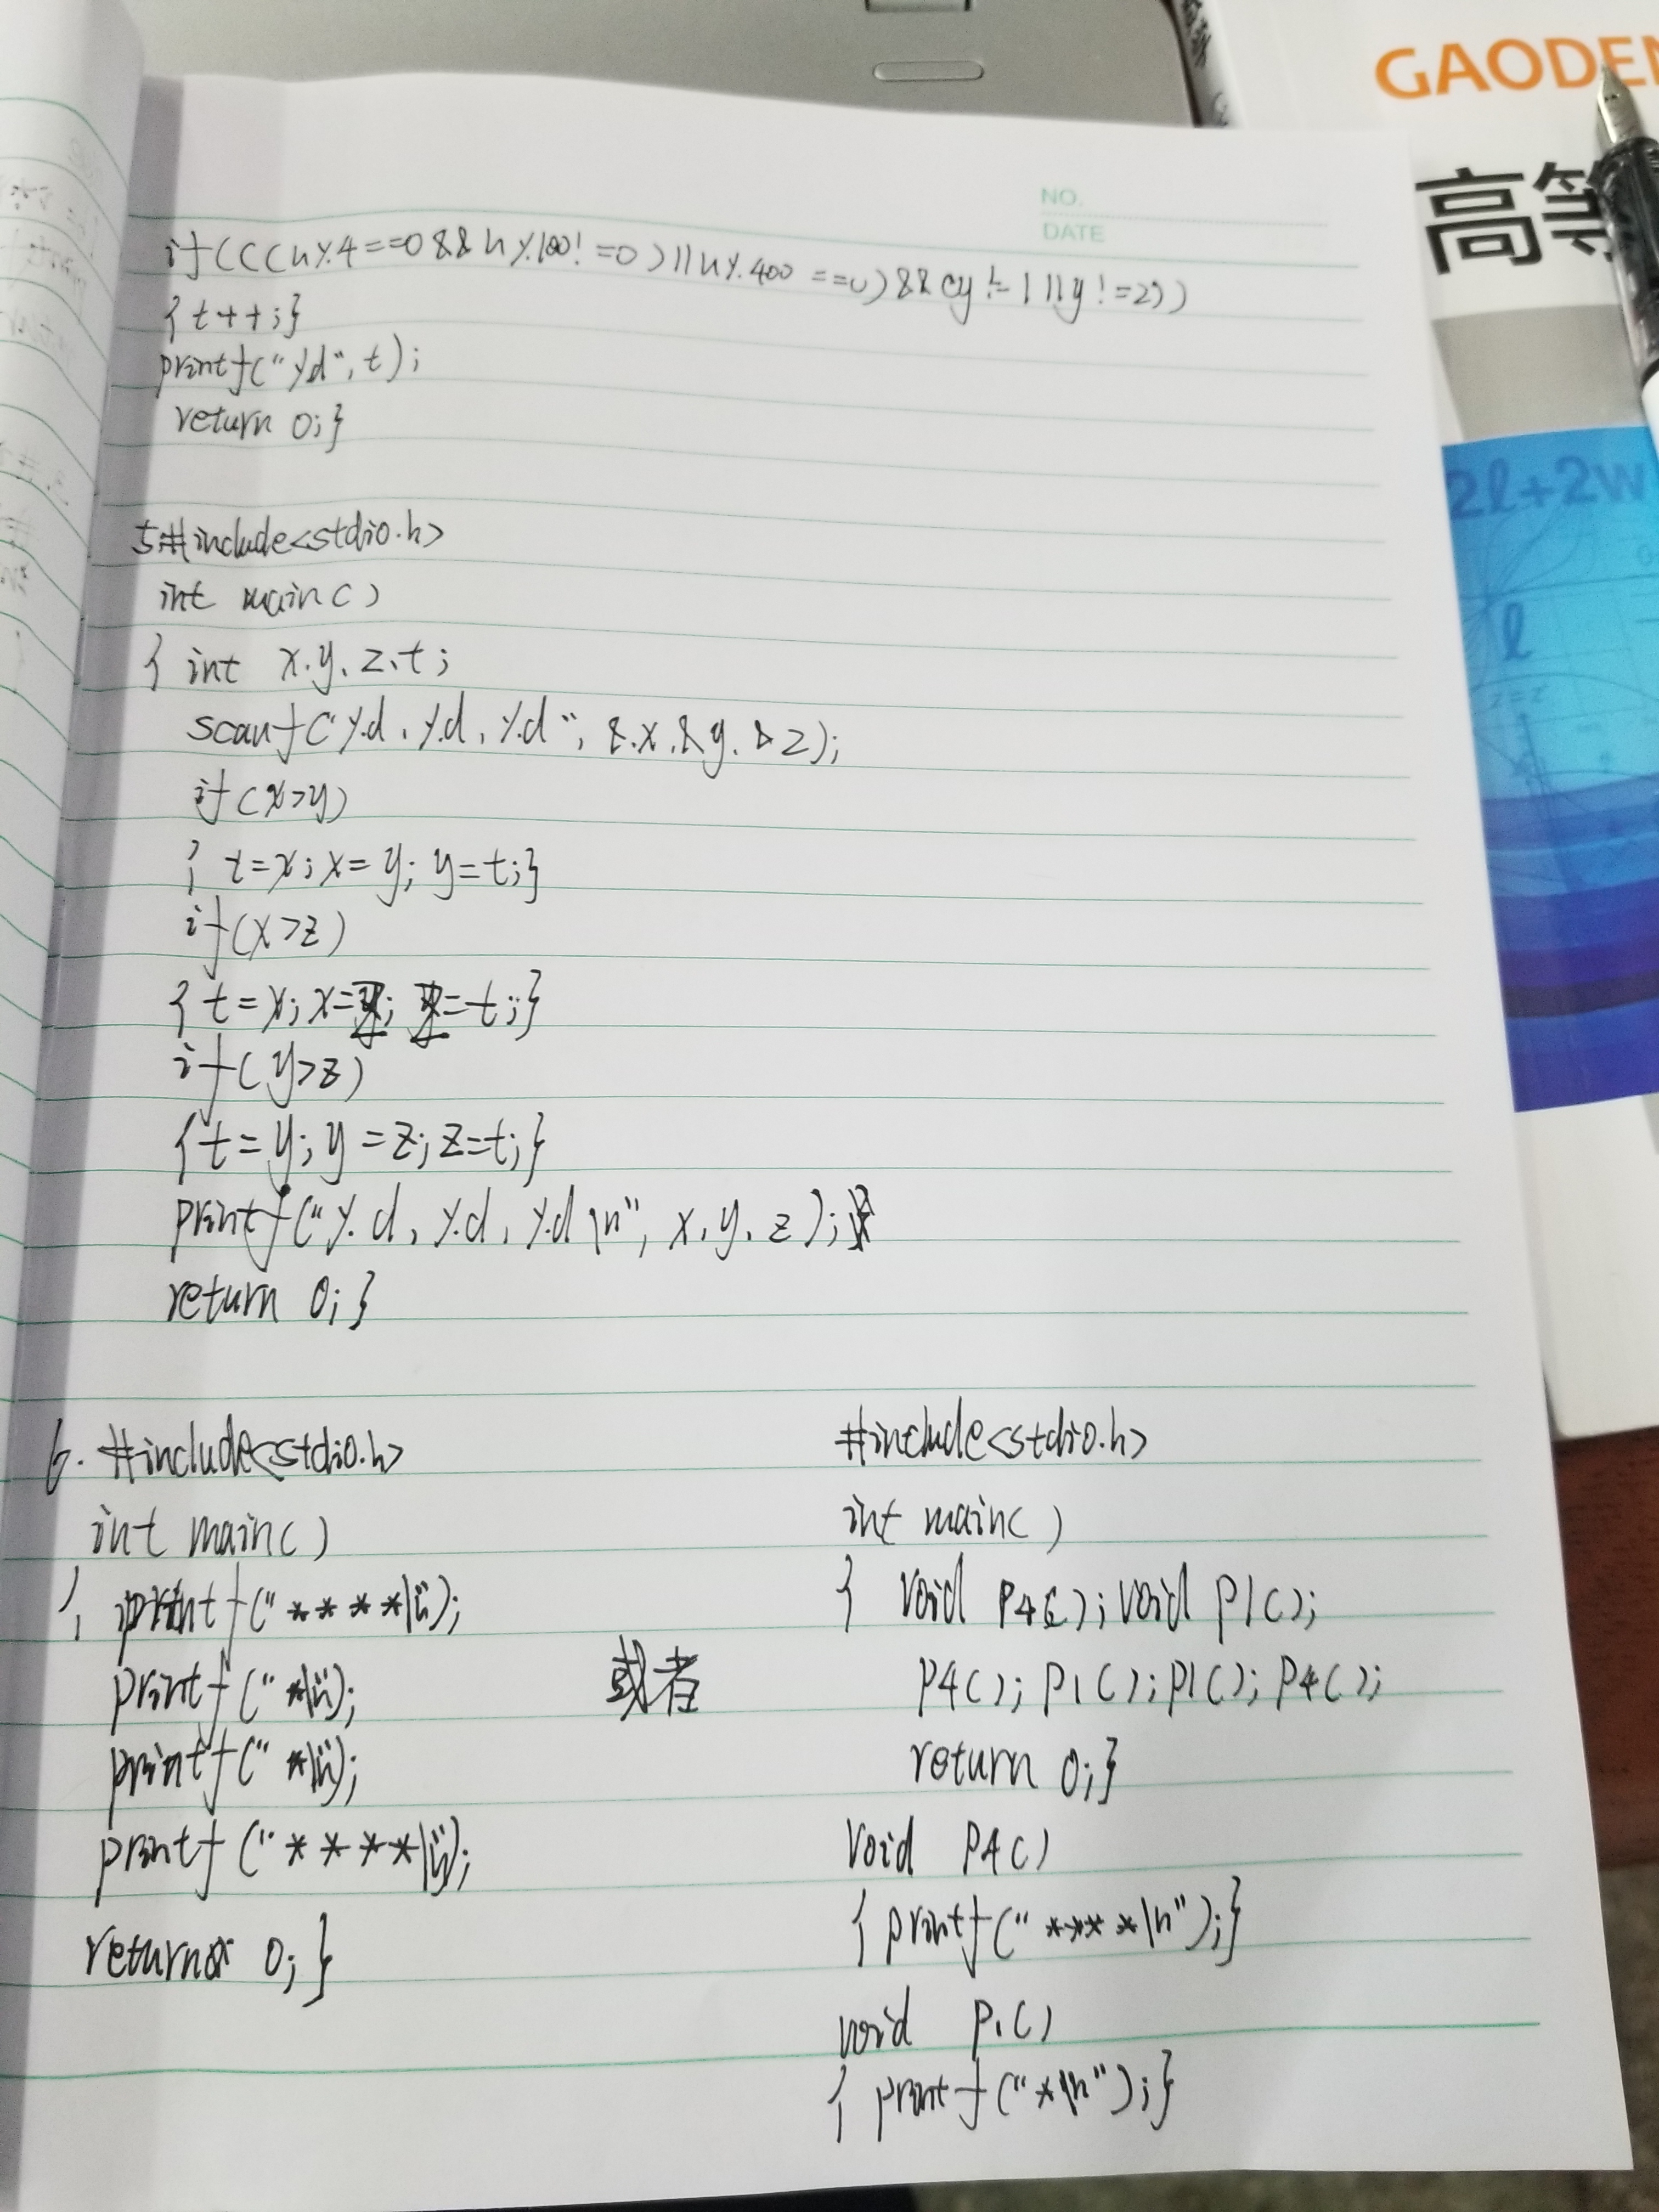 NO.
DATE
if(((n%4==0&&n%100!=0)||n%400==0)&&(y!=1||y!=2))
{t++;}
printf("%d",t);
return 0;}
5#include<stdio.h>
int main()
{ int x,y,z,t;
scanf("%d,%d,%d",&x,&y,&z);
if(x>y)
{ t=x;x=y;y=t;}
if(x>z)
{t=x;x=z;z=t;}
if(y>z)
{t=y;y=z;z=t;}
printf("%d,%d,%d\n",x,y,z);
return 0;}
6. #include<stdio.h>
int main()
{ printf("****\n");
printf("*\n");
printf("*\n");
printf("****\n");
return 0;}
或者
#include<stdio.h>
int main()
{ void P4();void P1();
P4();P1();P1();P4();
return 0;}
void P4()
{printf("****\n");}
void P1()
{printf("*\n");}
GAODEN
高等
2l+2w
l